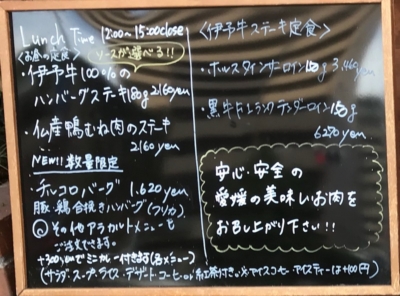 Lunch Time 12:00~15:00close
〈お昼の定食〉 ソースが選べる!!
・伊予牛100%の
ハンバーグステーキ180g 2160yen
・仏産鴨むね肉のステーキ
2160yen
NEW!! 数量限定
・チルコロバーグ 1.620yen
豚・鶏合挽きハンバーグ(フリカ)
その他アラカルトメニューも
ご注文できます。
+300yenでミニカレー付きます(各メニュー)
(サラダ・スープ・ライス・デザート・コーヒーor紅茶付き ※アイスコーヒー・アイスティーは+100円)
〈伊予牛ステーキ定食〉
・ホルスタインサーロイン150g 3.460yen
・黒牛 ランクテンダーロイン150g
6270yen
安心・安全の
愛媛の美味しいお肉を
お召し上がり下さい!!